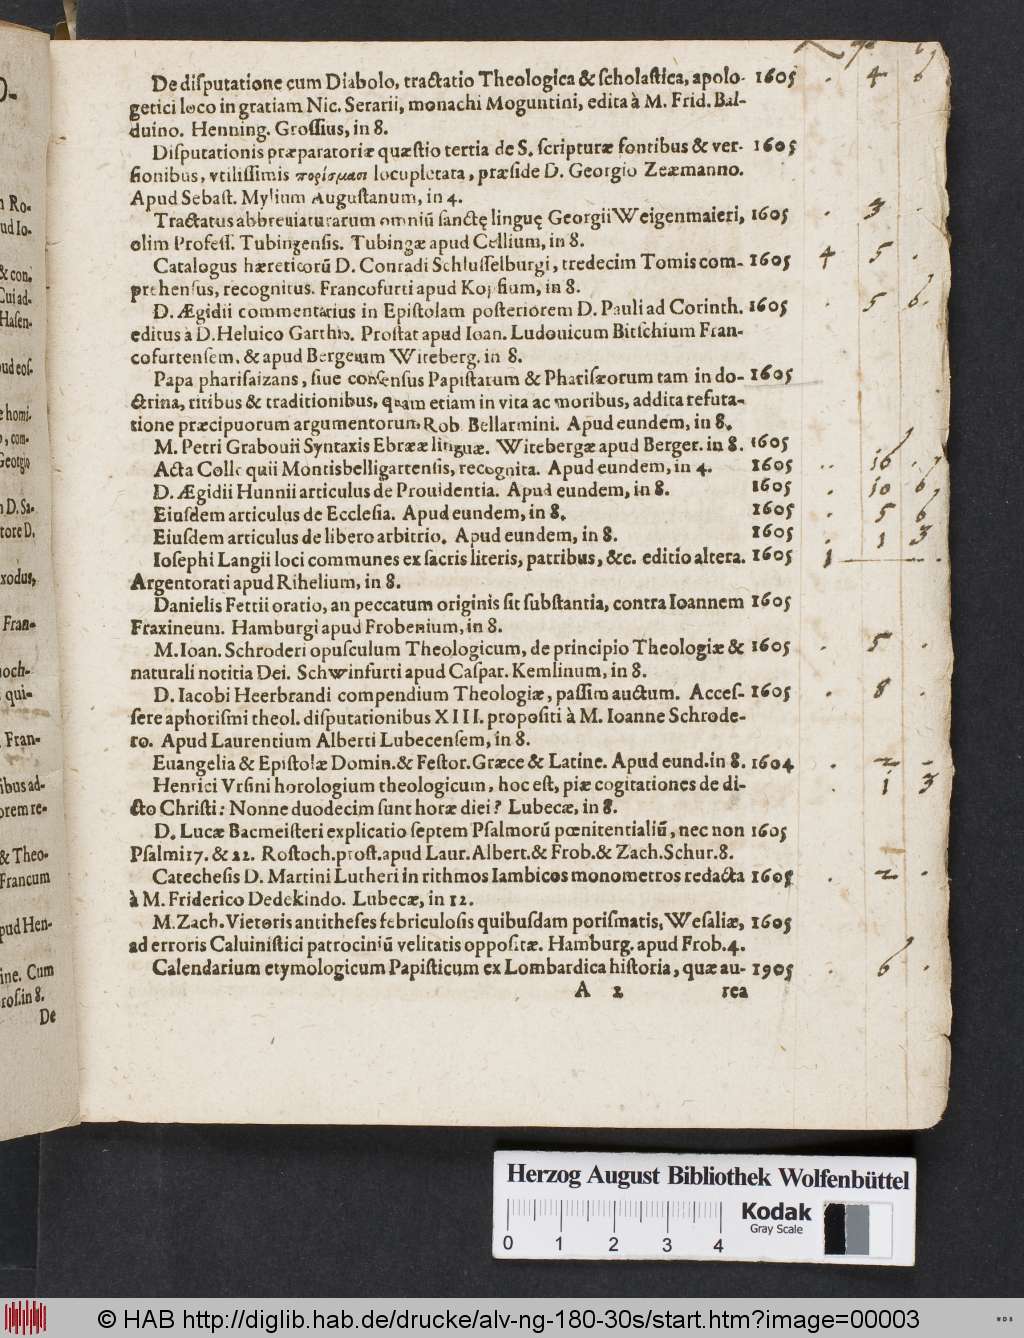 De disputatione cum Diabolo, tractatio Theologica & scholastica, apolo- 1605 . 4 6
getici loco in gratiam Nic. Serarii, monachi Moguntini, edita à M. Frid. Bal-
duino. Henning. Grossius, in 8.
Disputationis præparatoriæ quæstio tertia de S. scripturæ fontibus & ver- 1605
sionibus, vtilissimis πορίσμασι locupletata, præside D. Georgio Zeæmanno.
Apud Sebast. Mylium Augustanum, in 4.
Tractatus abbreuiaturarum omniũ sanctę linguę Georgii Weigenmaieri, 1605 . 3 .
olim Profess. Tubingensis. Tubingæ apud Cellium, in 8.
Catalogus hæreticorũ D. Conradi Schlusselburgi, tredecim Tomis com- 1605 4 5 .
prehensus, recognitus. Francofurti apud Kopfium, in 8.
D. Ægidii commentarius in Epistolam posteriorem D. Pauli ad Corinth. 1605 . 5 6.
editus à D. Heluico Garthio. Prostat apud Ioan. Ludouicum Bitschium Fran-
cofurtensem, & apud Bergerum Witeberg. in 8.
Papa pharisaizans, siue consensus Papistarum & Pharisæorum tam in do- 1605
ctrina, ritibus & traditionibus, quam etiam in vita ac moribus, addita refuta-
tione præcipuorum argumentorum Rob. Bellarmini. Apud eundem, in 8.
M. Petri Grabouii Syntaxis Ebrææ linguæ. Witebergæ apud Berger. in 8. 1605
Acta Colloquii Montisbelligartensis, recognita. Apud eundem, in 4. 1605 .. 16 .
D. Ægidii Hunnii articulus de Prouidentia. Apud eundem, in 8. 1605 . 10 6
Eiusdem articulus de Ecclesia. Apud eundem, in 8. 1605 . 5 6
Eiusdem articulus de libero arbitrio. Apud eundem, in 8. 1605 . 1 3
Iosephi Langii loci communes ex sacris literis, patribus, &c. editio altera. 1605 1 — .
Argentorati apud Rihelium, in 8.
Danielis Fettii oratio, an peccatum originis sit substantia, contra Ioannem 1605
Fraxineum. Hamburgi apud Frobenium, in 8.
M. Ioan. Schroderi opusculum Theologicum, de principio Theologiæ & 1605 . 5 .
naturali notitia Dei. Schwinfurti apud Caspar. Kemlinum, in 8.
D. Iacobi Heerbrandi compendium Theologiæ, passim auctum. Acces- 1605 . 8 .
sere aphorismi theol. disputationibus XIII. propositi à M. Ioanne Schrode-
ro. Apud Laurentium Alberti Lubecensem, in 8.
Euangelia & Epistolæ Domin. & Festor. Græce & Latine. Apud eund. in 8. 1604 . 2 -
Henrici Vrsini horologium theologicum, hoc est, piæ cogitationes de di- . 1 3
cto Christi: Nonne duodecim sunt horæ diei? Lubecæ, in 8.
D. Lucæ Bacmeisteri explicatio septem Psalmorũ pœnitentialiũ, nec non 1605
Psalmi 17. & 22. Rostoch. prost. apud Laur. Albert. & Frob. & Zach. Schur. 8.
Catechesis D. Martini Lutheri in rithmos Iambicos monometros redacta 1605 . 2 .
à M. Friderico Dedekindo. Lubecæ, in 12.
M. Zach. Vietoris antitheses febriculosis quibusdam porismatis, Wesaliæ, 1605
ad erroris Caluinistici patrociniũ velitatis oppositæ. Hamburg. apud Frob. 4.
Calendarium etymologicum Papisticum ex Lombardica historia, quæ au- 1905 . 6 .
A 2 rea
Herzog August Bibliothek Wolfenbüttel
0 1 2 3 4
Kodak
Gray Scale
© HAB http://diglib.hab.de/drucke/alv-ng-180-30s/start.htm?image=00003